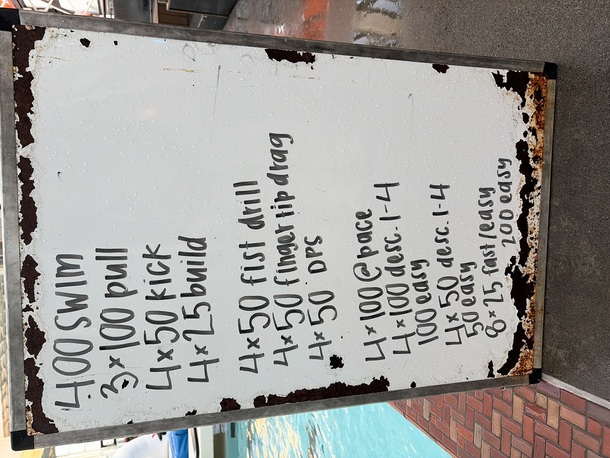 400 SWIM
3x100 pull
4x50 kick
4x25 build
4x50 fist drill
4x50 finger tip drag
4x50 DPS
4x100 @ pace
4x100 desc. 1-4
100 easy
4x50 desc. 1-4
50 easy
8x25 fast/easy
200 easy